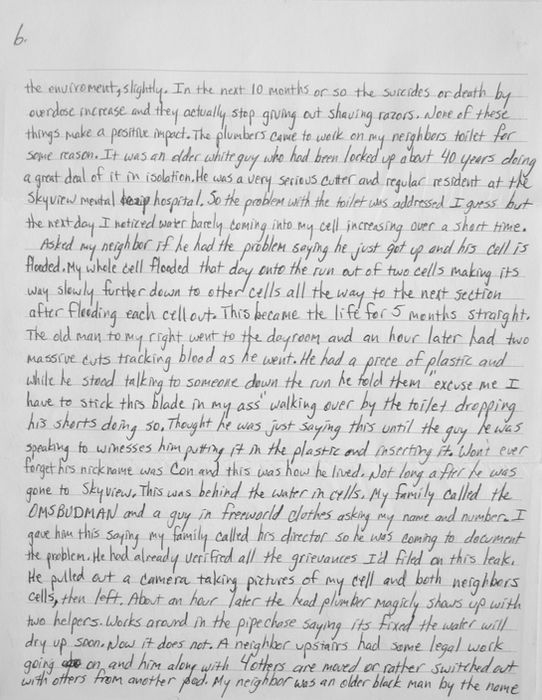 6.
the enviroment, slightly. In the next 10 months or so the suicides or death by
overdose increase and they actually stop giving out shaving razors. None of these
things make a positive impact. The plumbers came to work on my neighbors toilet for
some reason. It was an older white guy who had been locked up about 40 years doing
a great deal of it in isolation. He was a very serious cutter and regular resident at the
Skyview mental hospital. So the problem with the toilet was addressed I guess but
the next day I noticed water barely coming into my cell increasing over a short time.
Asked my neighbor if he had the problem saying he just got up and his cell is
flooded. My whole cell flooded that day onto the run out of two cells making its
way slowly further down to other cells all the way to the next section
after flooding each cell out. This became the life for 5 months straight.
The old man to my right went to the dayroom and an hour later had two
massive cuts tracking blood as he went. He had a piece of plastic and
while he stood talking to someone down the run he told them "excuse me I
have to stick this blade in my ass" walking over by the toilet dropping
his shorts doing so. Thought he was just saying this until the guy he was
speaking to winesses him putting it in the plastic and inserting it. Won't ever
forget his nickname was Con and this was how he lived. Not long after he was
gone to Skyview. This was behind the water in cells. My family called the
OMSBUDMAN and a guy in freeworld clothes asking my name and number. I
gave him this saying my family called his director so he was coming to document
the problem. He had already verified all the grievances I'd filed on this leak.
He pulled out a camera taking pictures of my cell and both neighbors
cells, then left. About an hour later the head plumber magicly shows up with
two helpers. Works around in the pipechase saying its fixed the water will
dry up soon. Now it does not. A neighbor upstairs had some legal work
going on, and him along with 4 others are moved or rather switched out
with others from another pod. My neighbor was an older black man by the name